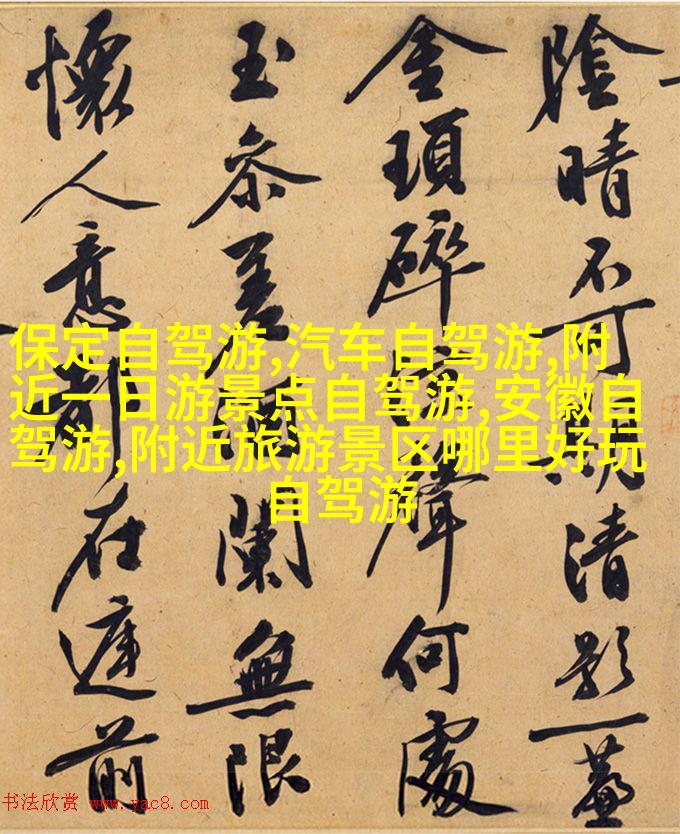 陰晴不可清影一蓋
金瑣碎聲何處
玉參差闌無限
懷人意都在前
保定自驾游,汽车自驾游,附
近一日游景点自驾游,安徽自
驾游,附近旅游景区哪里好玩
自驾游
书法欣赏 www.yac8.com